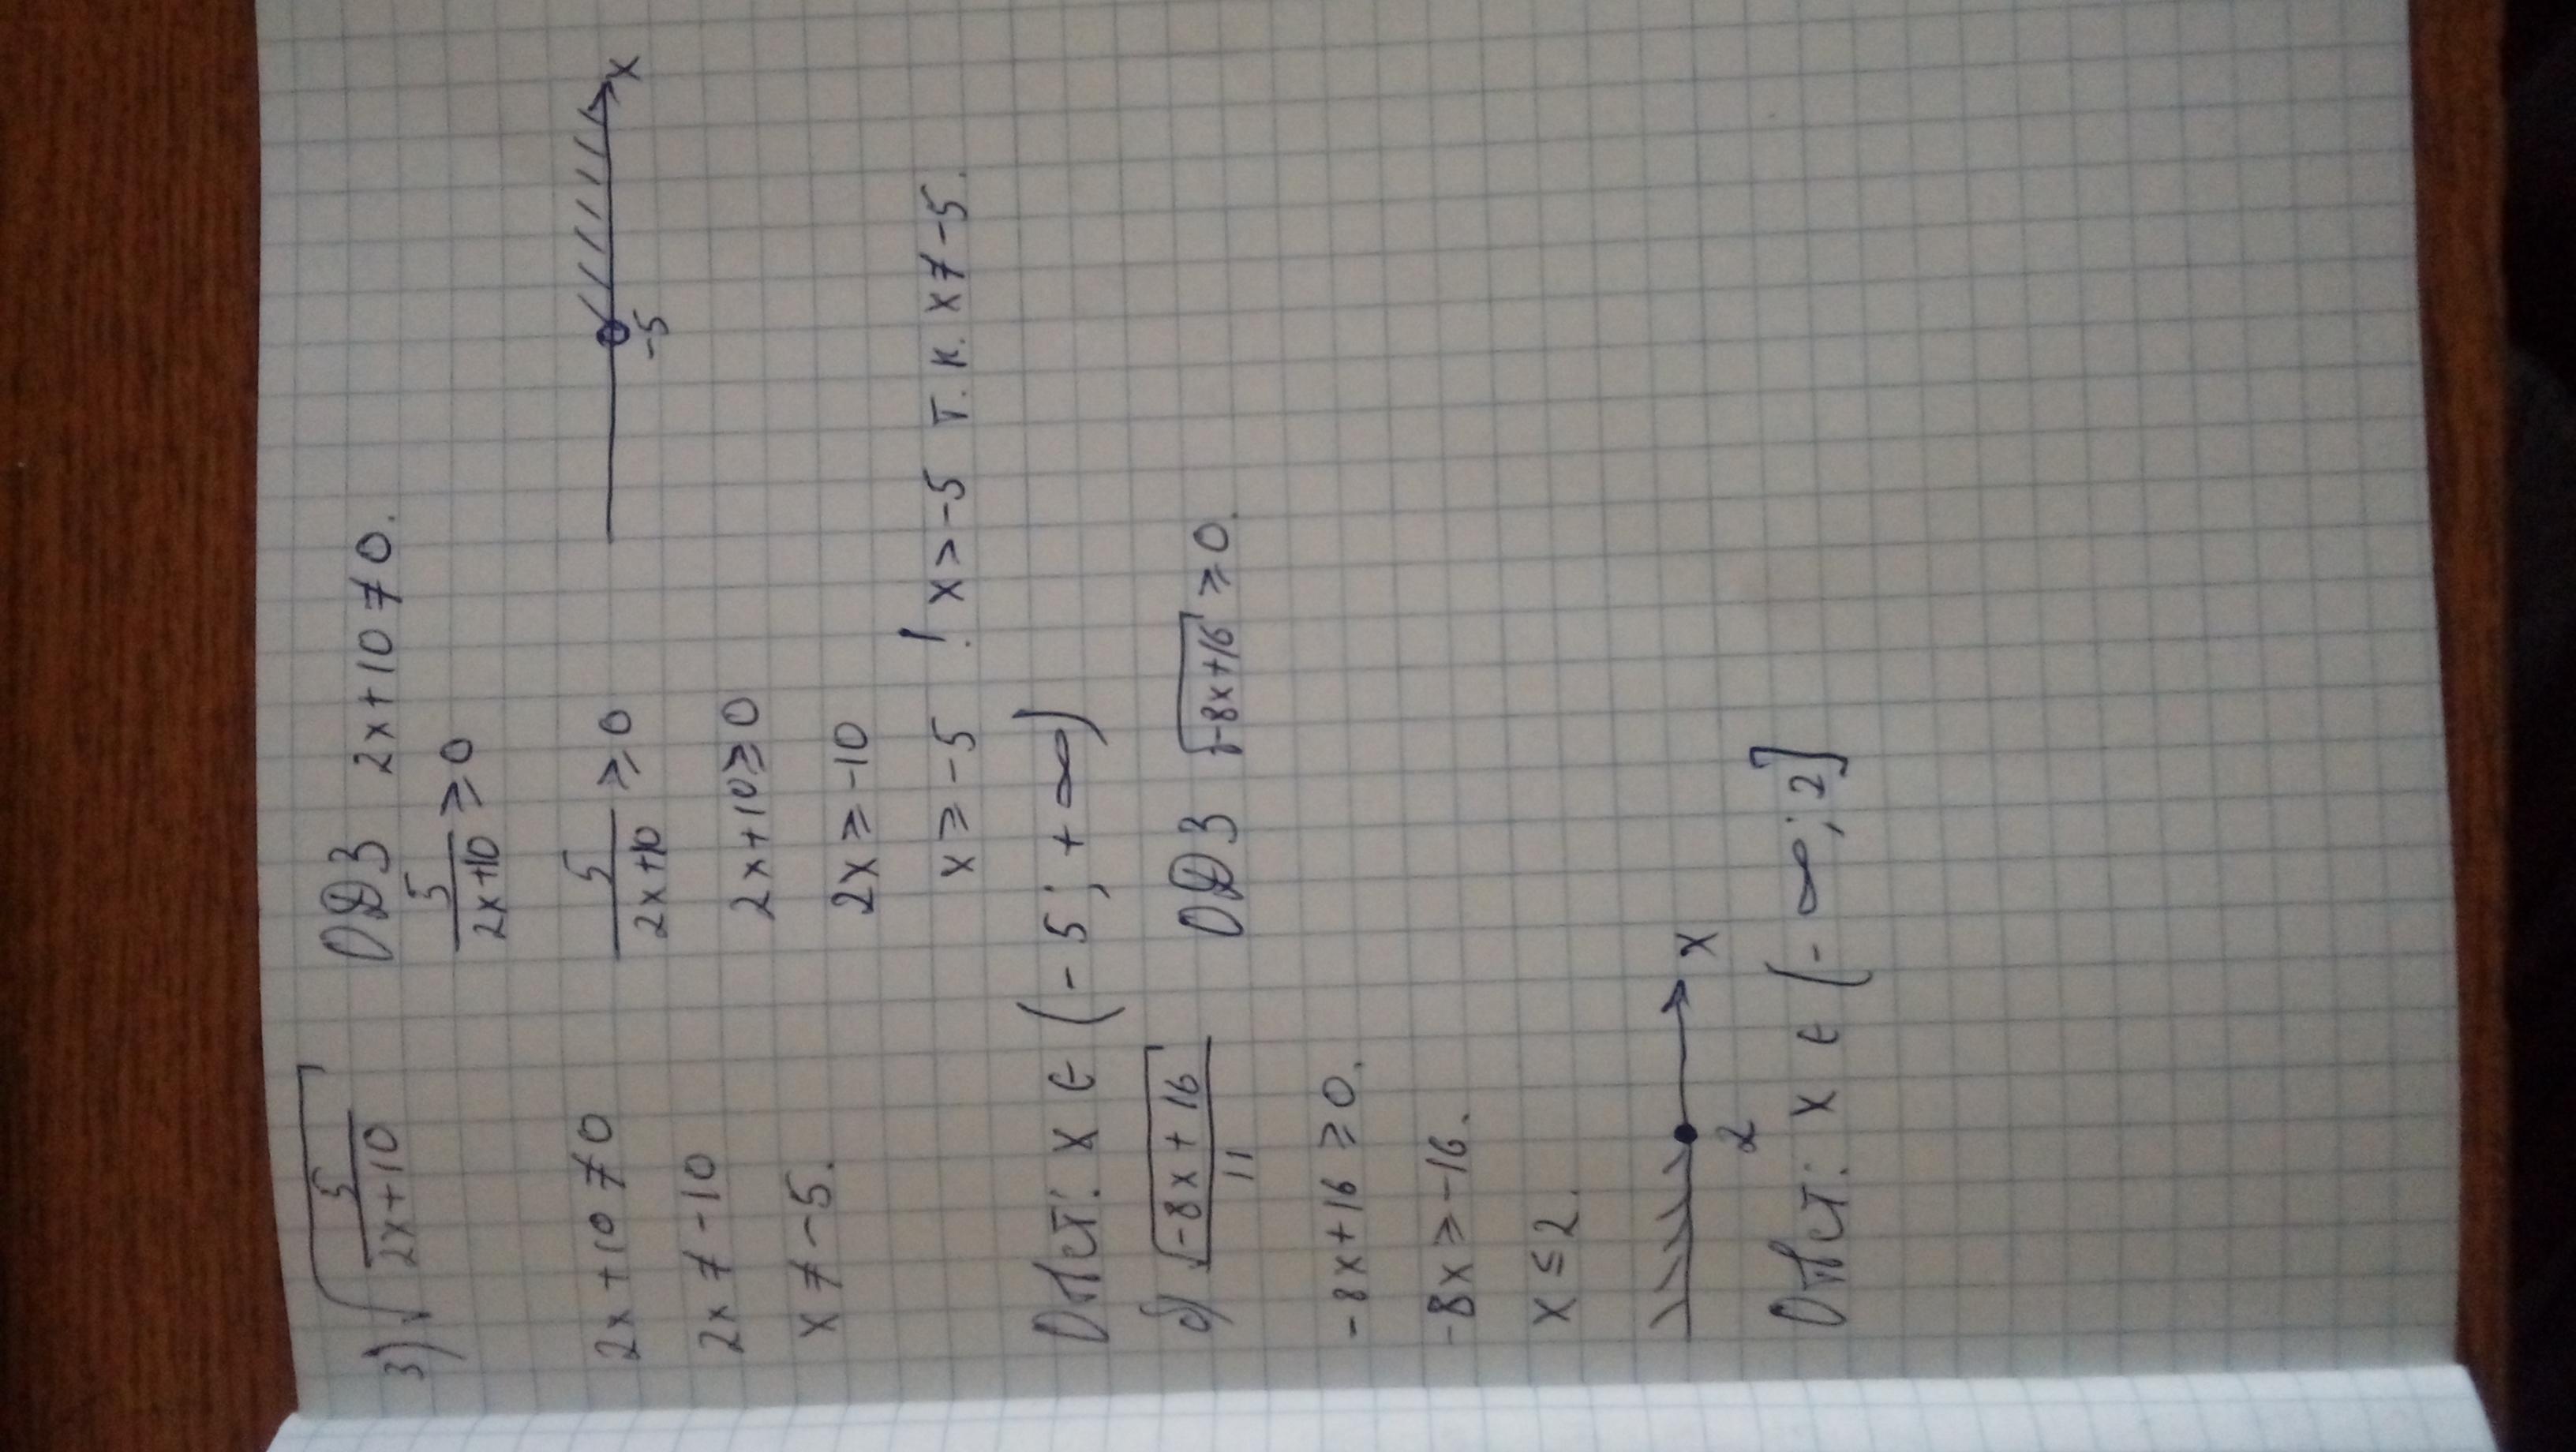 3) √(5/(2x+10)) ОДЗ 2x+10≠0.
5/(2x+10) ≥ 0
2x+10≠0 5/(2x+10) ≥ 0
-5 x
2x≠-10 2x+10≥0
x≠-5. 2x≥-10
x≥-5 ! x>-5 т.к. x≠-5.
Ответ: x ∈ (-5; +∞)
б) √(-8x+16)/11 ОДЗ √(-8x+16) ≥0.
-8x+16≥0.
-8x≥-16.
x≤2.
2 x
Ответ: x ∈ (-∞; 2]